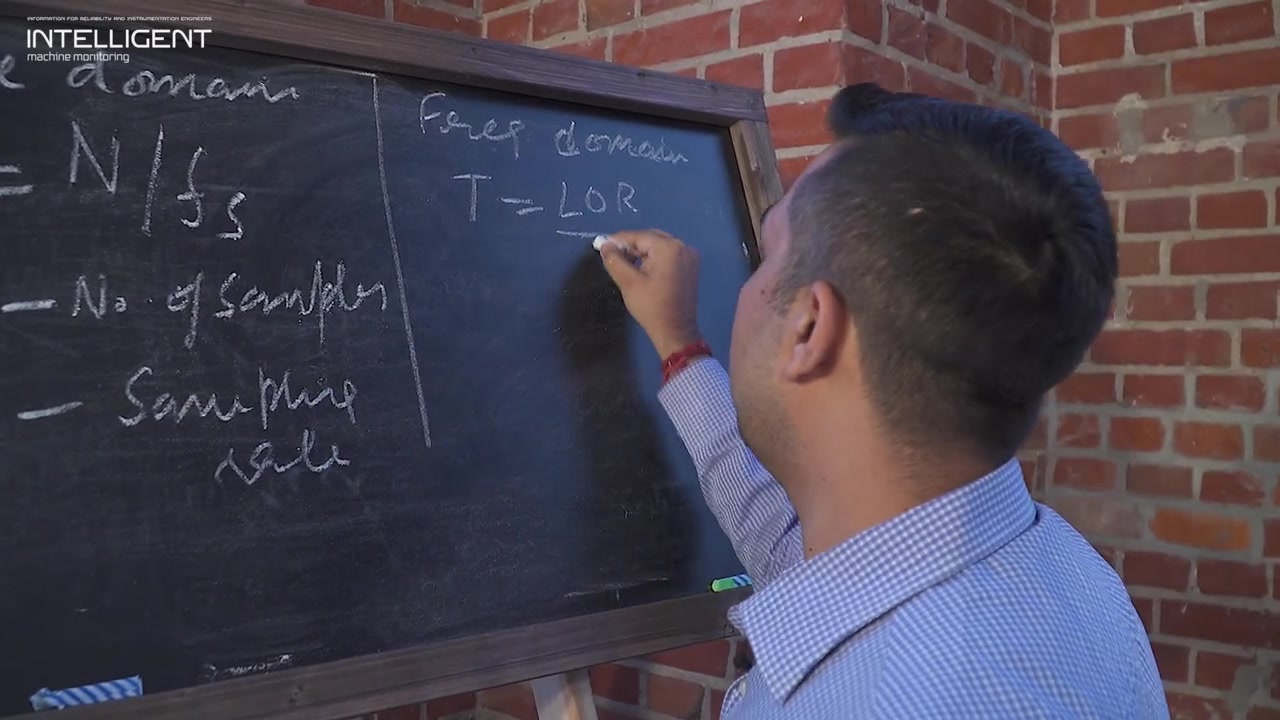 INFORMATION FOR RELIABILITY AND INSTRUMENTATION ENGINEERS
INTELLIGENT
machine monitoring
e domain
= N/fs
- No. of Samples
- Sampling
rate
Freq domain
T = LOR